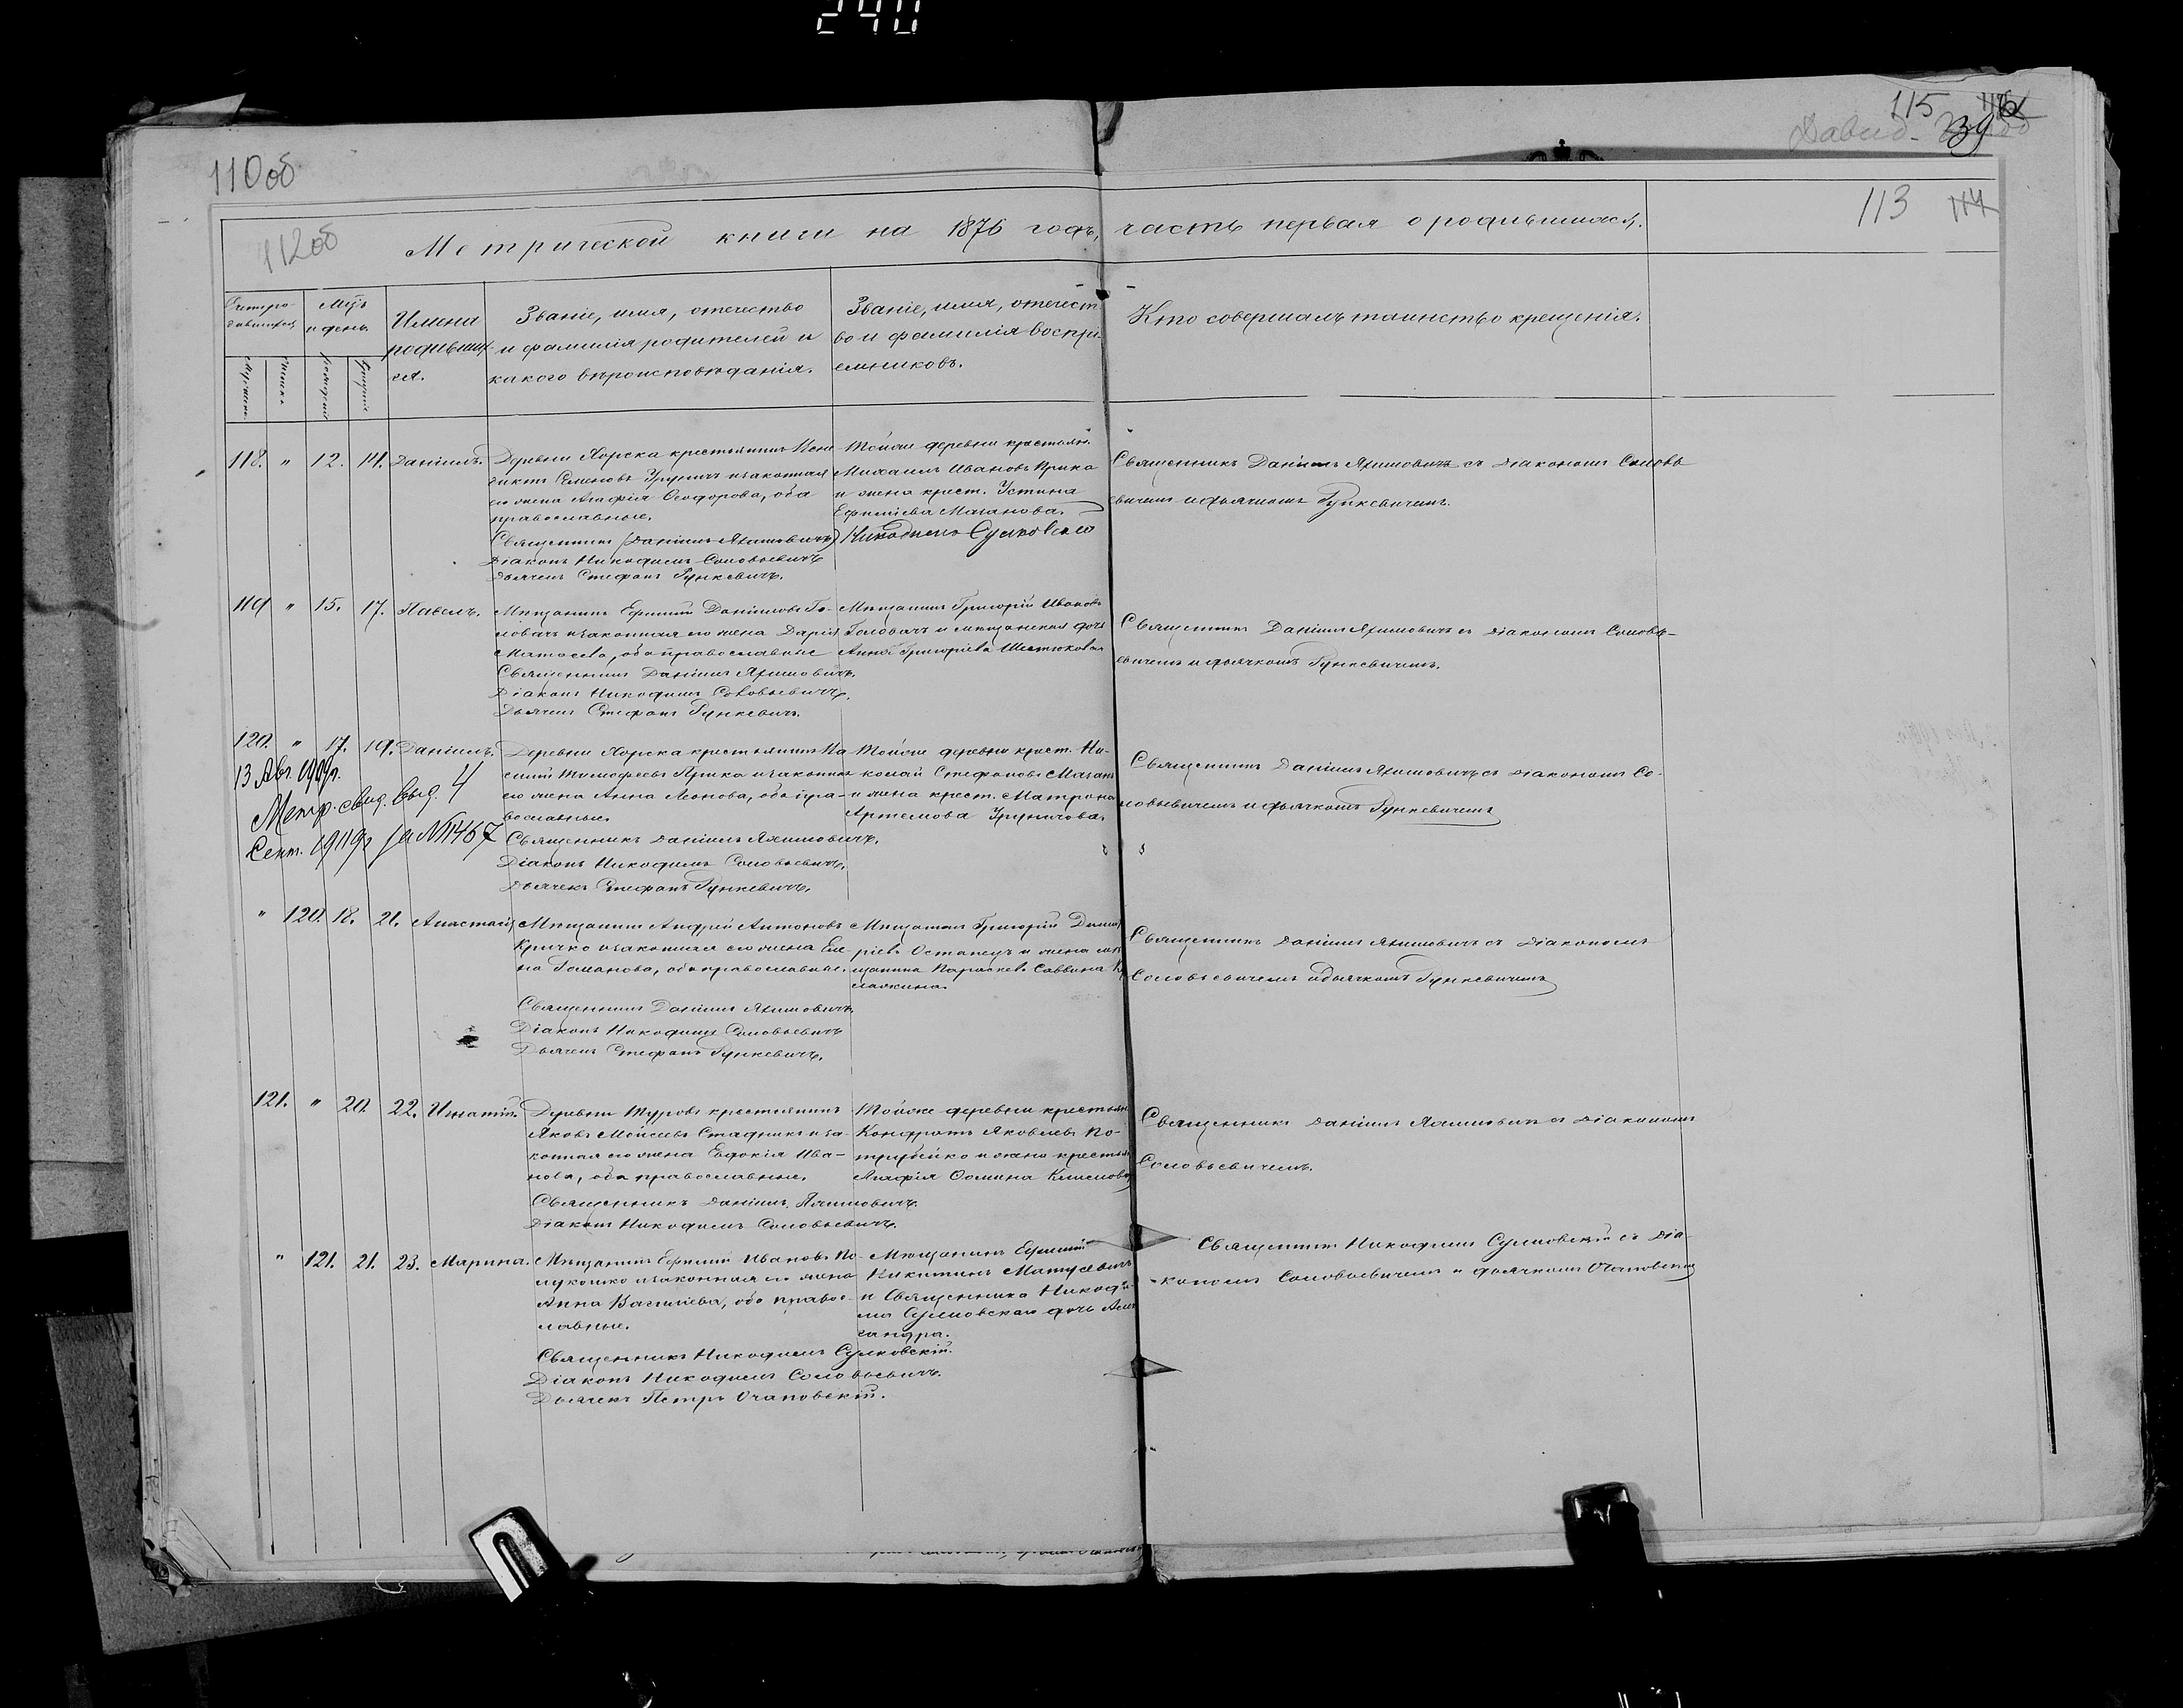 240
110об
115
Давид-
39
112об
113
114
Метрической книги на 1876 годъ, часть первая о родившихся.
Мѣсяцъ и день.
Имена родившихся.
Званіе, имя, отчество
и фамилія родителей и
какого вѣроисповѣданія.
Званіе, имя, отечест-
во и фамилія воспрі-
емниковъ.
Кто совершалъ таинство крещенія.
118. " 12. 14. Даніилъ.
Деревни Хорска крестьянинъ
законная
его жена Агафія Ѳеодорова, оба
православные.
Священникъ Даніилъ Яхимовичъ
Діаконъ Никодимъ Соловьевичъ
Дьячекъ Стефанъ Рункевичъ.
Тойже деревни крестьян.
Михаилъ Ивановъ Прика
и жена крест. Устина
Ефимiева Маганова.
Никодимъ Сулковскій
Священникъ Даніилъ Яхимовичъ съ діакономъ Соловь-
евичемъ и дьячкомъ Рункевичемъ.
119 " 15. 17. Павелъ.
Мѣщанинъ Ефимій Даніиловъ Го-
ловачъ и законная его жена Дарія
Матѳеева, оба православные
Священникъ Даніилъ Яхимовичъ.
Діаконъ Никодимъ Соловьевичъ.
Дьячекъ Стефанъ Рункевичъ.
Мѣщанинъ Григорій Ивановъ
Головачъ и мѣщанская дочь
Анна Григоріева
Священникъ Даніилъ Яхимовичъ съ діакономъ Соловь-
евичемъ и дьячкомъ Рункевичемъ.
120. " 17. 19. Даніилъ.
13 Авг. 1909г.
Метр. свид. выд. 4
Сент. 1919г за № 1467
Деревни Хорска крестьянинъ Ма-
ксимъ Тимофеевъ Прика и законная
его жена Анна Леонова, оба пра-
вославные.
Священникъ Даніилъ Яхимовичъ.
Діаконъ Никодимъ Соловьевичъ.
Дьячекъ Стефанъ Рункевичъ.
Тойже деревни крест. Ни-
колай Стефановъ Маган
и жена крест. Матрона
Артемова
Священникъ Даніилъ Яхимовичъ съ діакономъ Со-
ловьевичемъ и дьячкомъ Рункевичемъ
" 120. 18. 21. Анастасія
Мѣщанинъ Андрей Антоновъ
Кричко и законная его жена Еле-
на Романова, оба православные.
Священникъ Даніилъ Яхимовичъ.
Діаконъ Никодимъ Соловьевичъ
Дьячекъ Стефанъ Рункевичъ.
Мѣщанинъ Григорій Дмит-
ріевъ Останецъ и жена мѣ-
щанина Параскев. Саввина
Священникъ Даніилъ Яхимовичъ съ діакономъ
Соловьевичемъ и дьячкомъ Рункевичемъ
121. " 20. 22. Игнатій.
Деревни Туровъ крестьянинъ
Яковъ Моисеевъ Стадникъ и за-
конная его жена Евдокія Ива-
нова, оба православные.
Священникъ Даніилъ Яхимовичъ.
Діаконъ Никодимъ Соловьевичъ.
Тойже деревни крестьян
Кондратъ Яковлевъ По-
трубейко и жена крестьян
Агафія Ѳомина
Священникъ Даніилъ Яхимовичъ съ діакономъ
Соловьевичемъ.
" 121. 21. 23. Марина.
Мѣщанинъ Ефимій Ивановъ По-
лукошко и законная его жена
Анна Василіева, оба правос-
лавные.
Священникъ Никодимъ Сулковскій.
Діаконъ Никодимъ Соловьевичъ.
Дьячекъ Петръ Очаповскій.
Мѣщанинъ Ефимій
Никитинъ Матусевичъ
и Священника Никоди-
ма Сулковскаго дочь Алек-
сандра.
Священникъ Никодимъ Сулковскій съ діа-
кономъ Соловьевичемъ и дьячкомъ Очаповскимъ